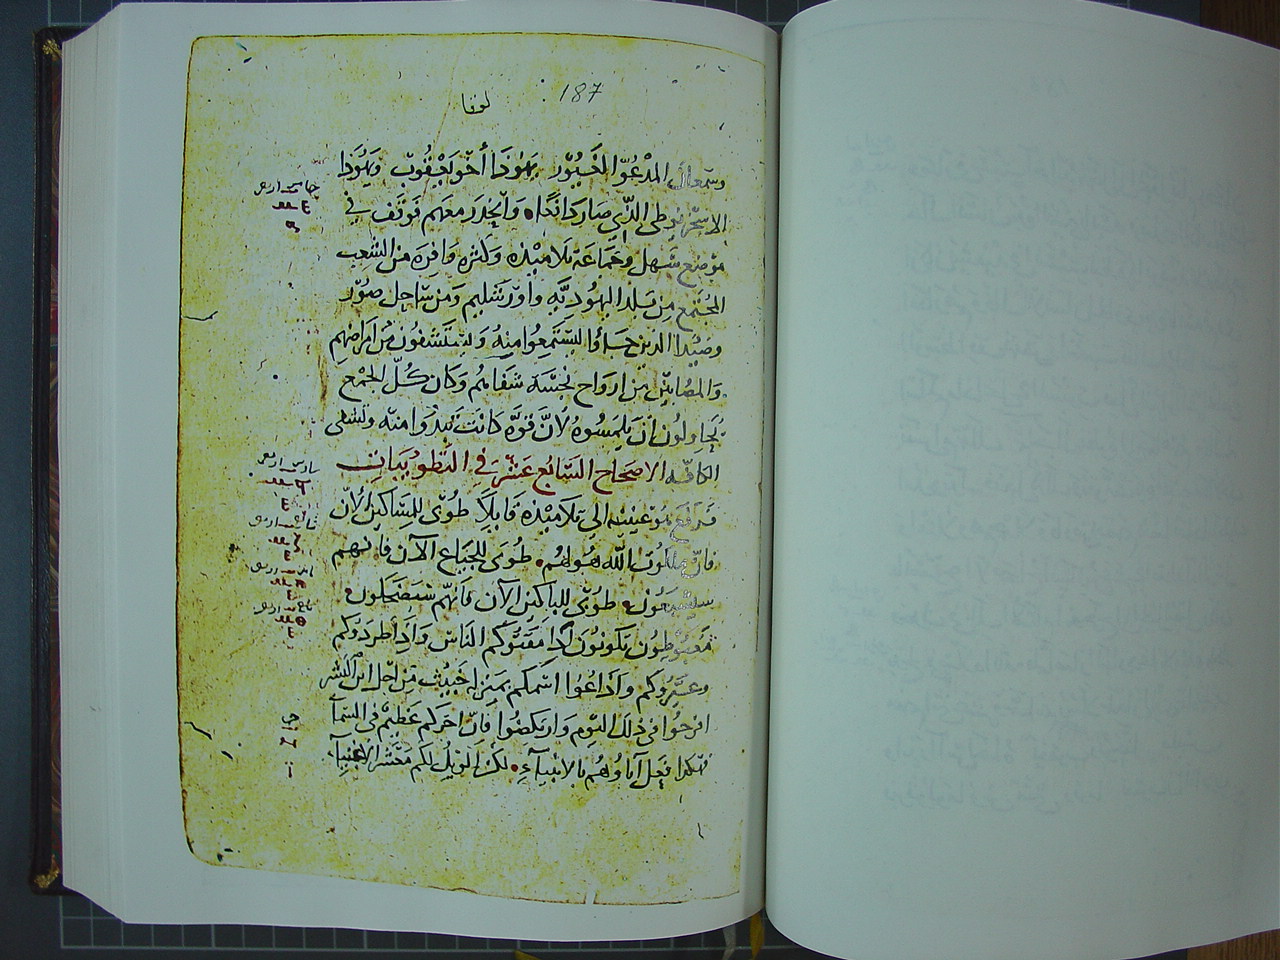 187
لوقا
وسمعان المدعو الغيور يهوذا أخو يعقوب ويهوذا
الاسخريوطي الذي صار دافعًا. وانحدر معهم فوقف في
موضع سهل وجماعة تلاميذه وكثره وافره من الشعب
المجتمع من بلد اليهوديه واورشليم ومن ساحل صور
وصيدا الذين جاءوا ليستمعوا منه وليستشفون من امراضهم
والمصابين من ارواح نجسة شفاهم وكان كُلّ الجمع
يحاولون ان يلمسوه لأنّ قوّه كانت تبدوا منه وتشفى
الكافه الاصحاح السابع عشر في التطوبيات
فرفع هو عينيه الي تلاميذه قايلًا طُوبى للمساكين لأن
فانّ ملكوت الله هو لهم. طُوبَى للجياع الآن فانهم
سيشبعون. طُوبَى للباكين الآن فانّهم سيضحكون.
مغبوطون تكونون اذا مقتوكم الناس واذا طردوكم
وعيّروكم واذاعوا اسمكم بمنزله خبيث من اجل ابن البشر
افرحوا في ذلك اليوم واركضوا فانّ اجركم عظيم في السمآ
هكذا فعل آباوهم بالانبيآء. لكن الويل لكم معشر الاغنيآ